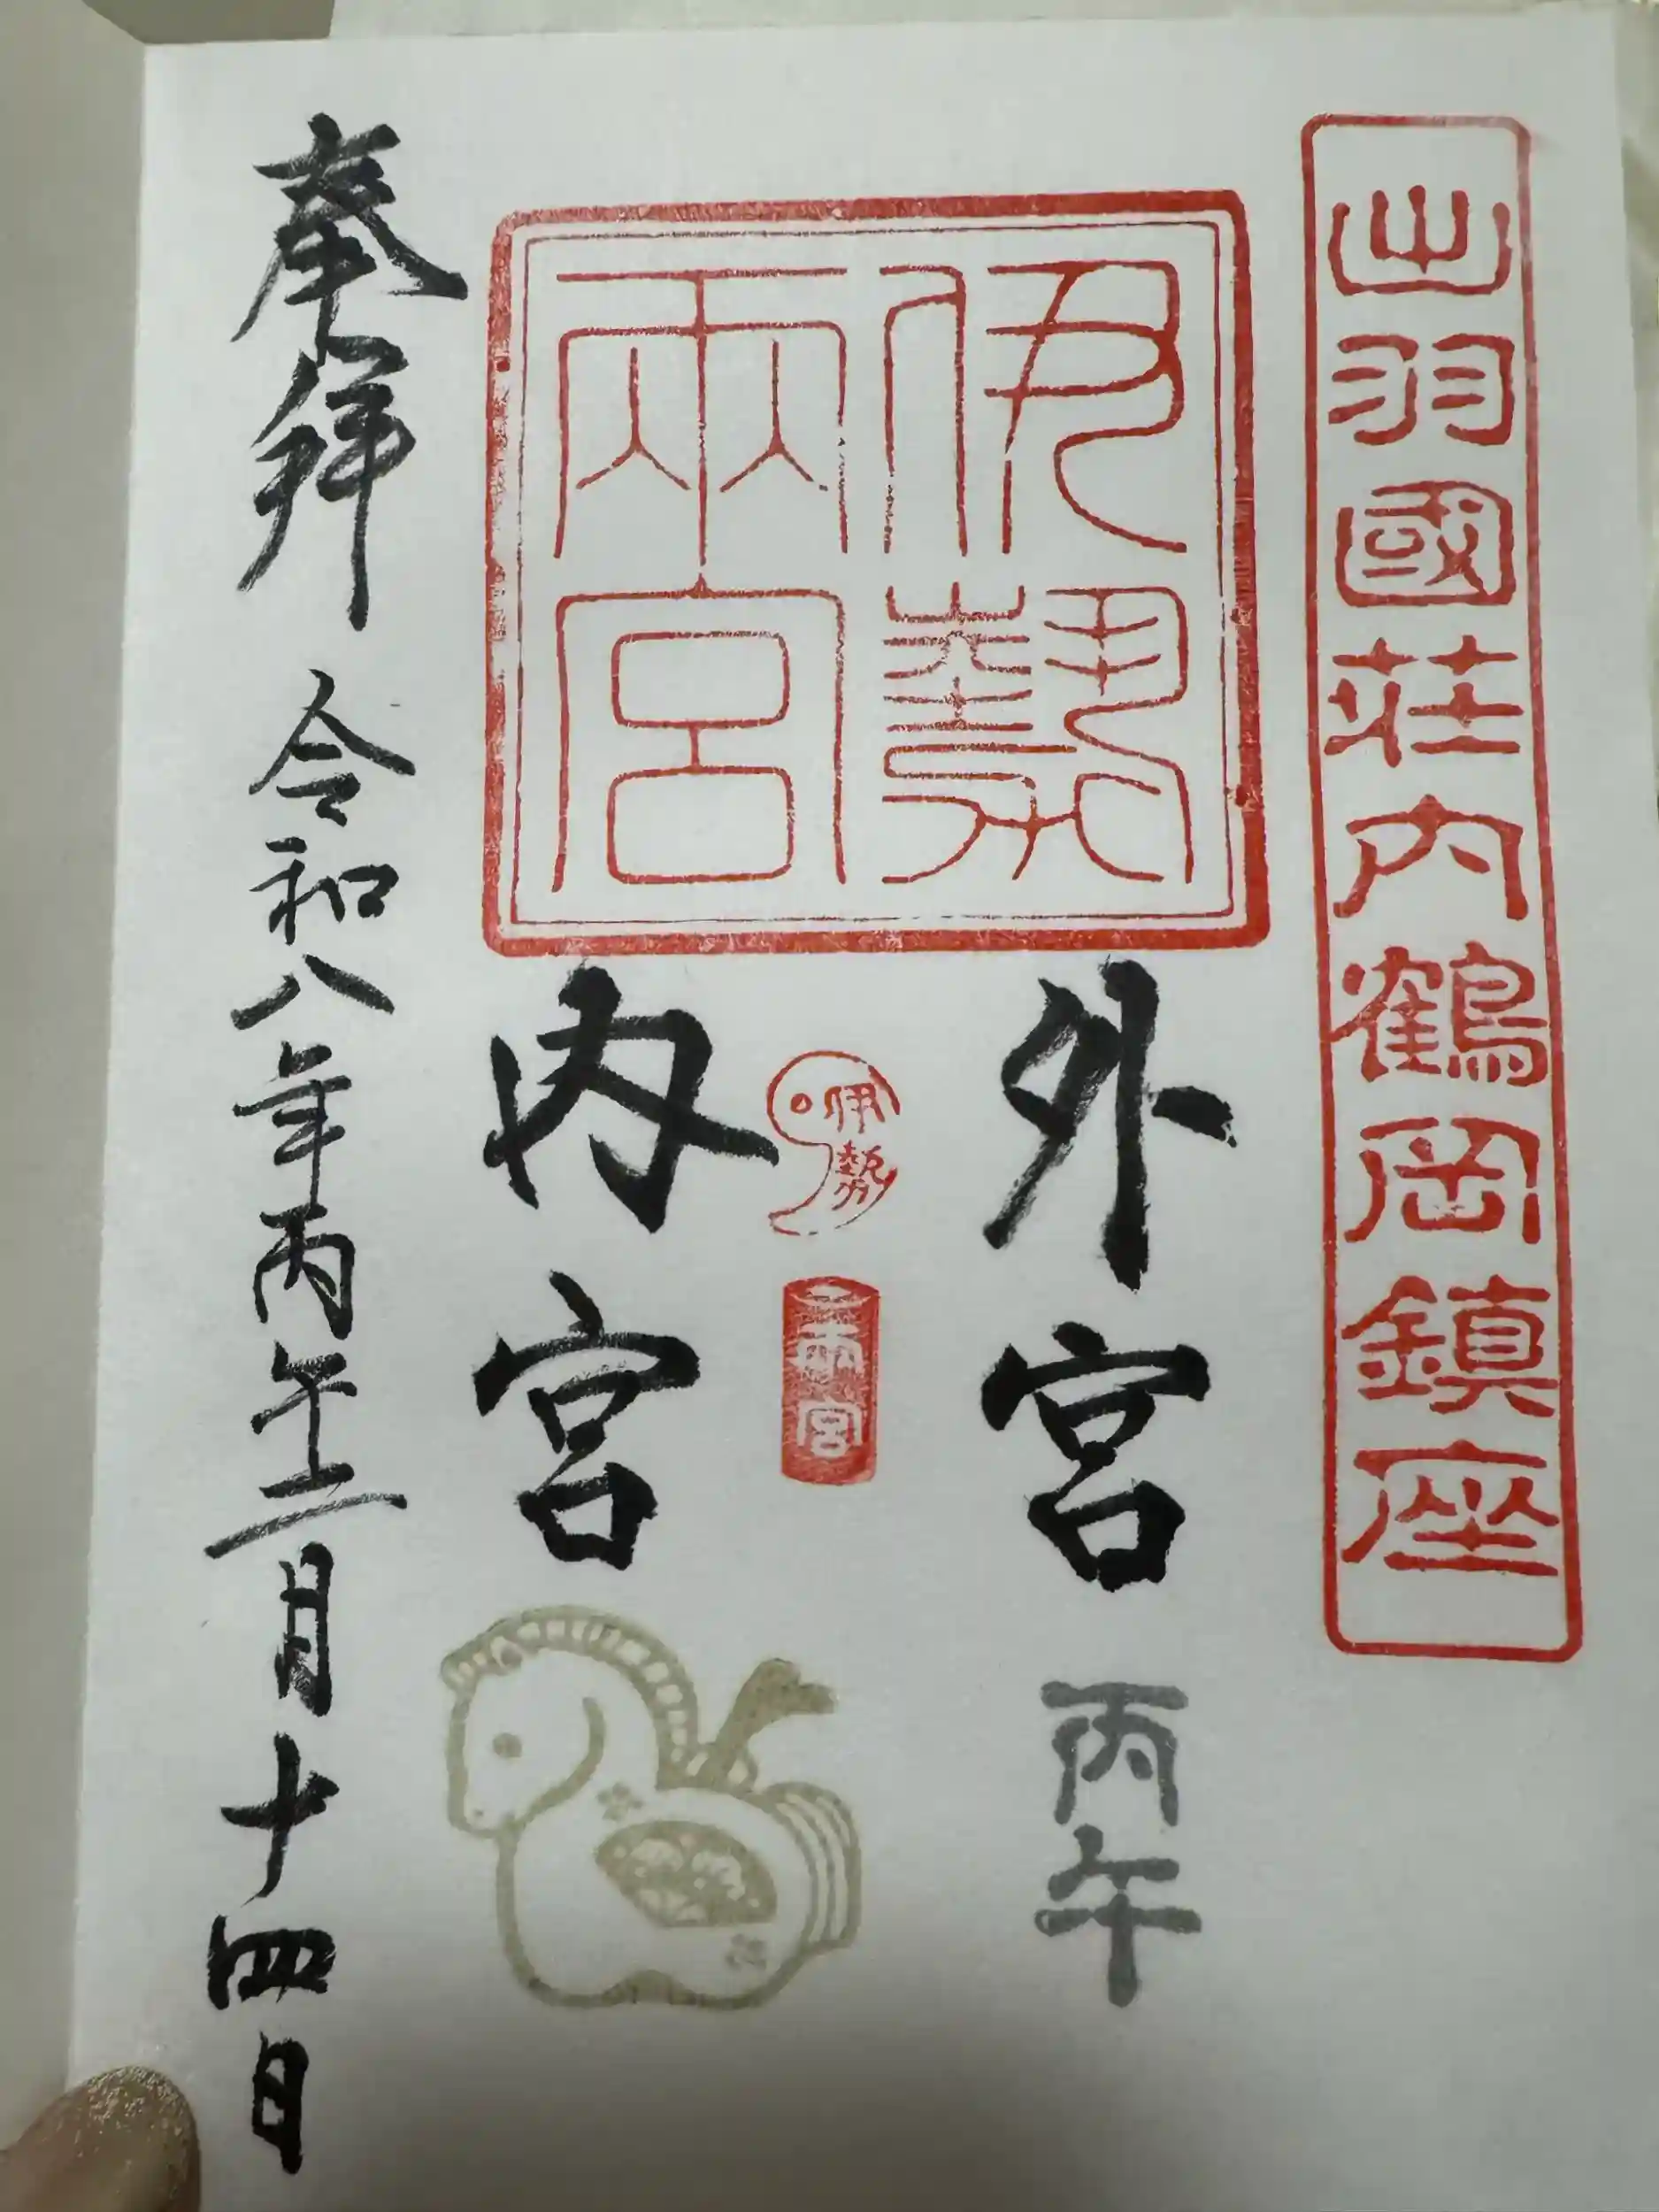 出羽國莊内鶴岡鎮座
伊勢
兩宮
外宮
丙午
伊勢
両宮
内宮
奉拝 令和八年丙午二月十四日